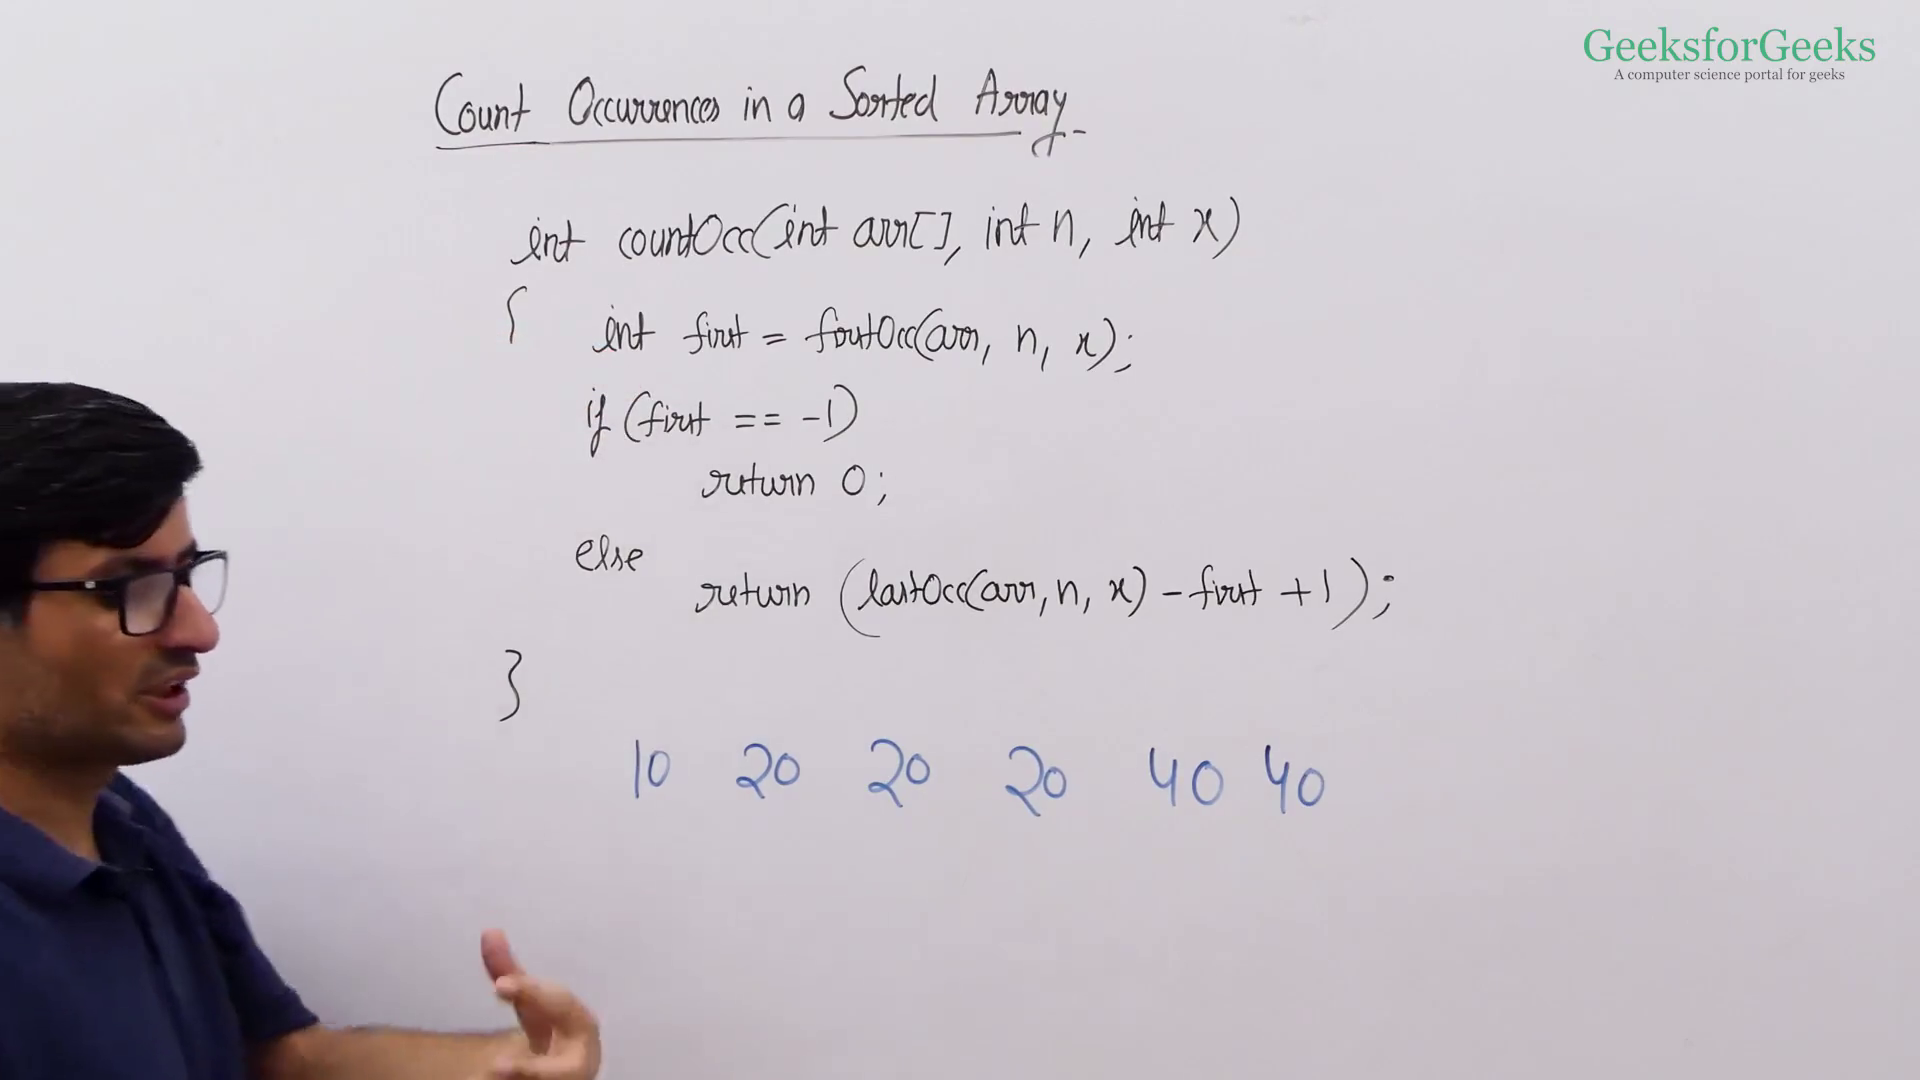 GeeksforGeeks
A computer science portal for geeks
Count Occurrences in a Sorted Array
int countOcc(int arr[], int n, int x)
{
int first = firstOcc(arr, n, x);
if (first == -1)
return 0;
else
return (lastOcc(arr, n, x) - first + 1);
}
10 20 20 20 40 40